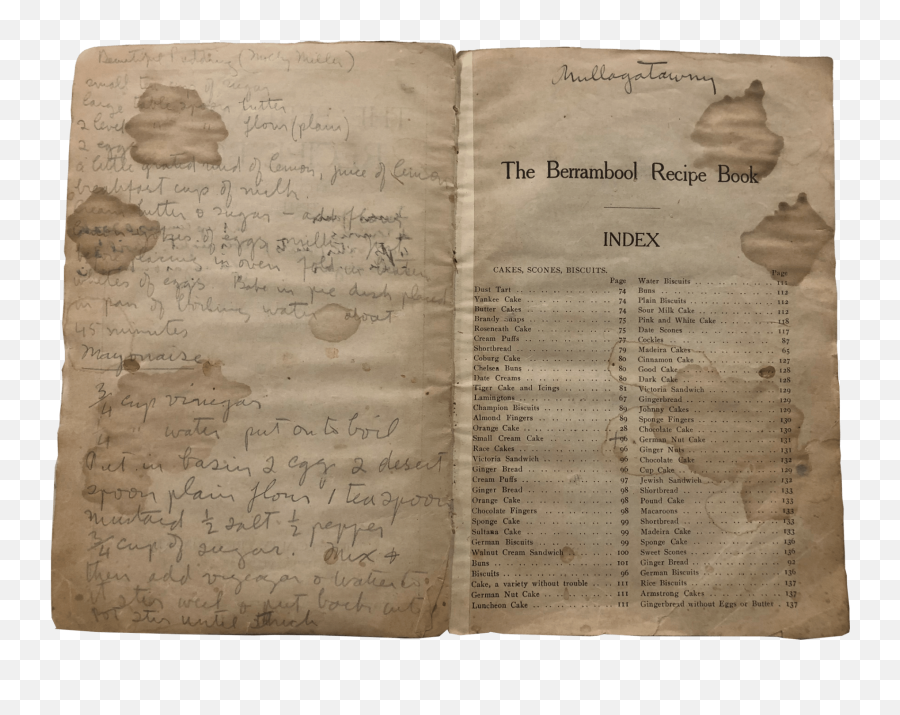 Pudding (Molly Miller)
small of sugar
large table spoon butter
2 level flour (plain)
2 eggs
a little grated rind of lemon, juice of Lemon
breakfast cup of milk.
butter & sugar –
of eggs milk
in oven Fold in beaten
whites of eggs Bake in pie dish placed
in pan of boiling water about
45 minutes
Mayonaise
3/4 cup vinegar
4 " water put on to boil
Put in basin 2 egg 2 desert
spoon plain flour 1 teaspoon
mustard 1/2 salt 1/2 pepper
3/4 cup of sugar. Mix &
then add vinegar & water
stir well & put back
stir until thick
Mullagatawny
The Berrambool Recipe Book
INDEX
CAKES, SCONES, BISCUITS.
Page
Dust Tart 74
Yankee Cake 74
Butter Cakes 74
Brandy Snaps 75
Roseneath Cake 75
Cream Puffs 77
Shortbread 79
Coburg Cake 80
Chelsea Buns 80
Date Creams 80
Tiger Cake and Icings 81
Lamingtons 67
Champion Biscuits 89
Almond Fingers 89
Orange Cake 28
Small Cream Cake 96
Race Cakes 96
Victoria Sandwich 96
Ginger Bread 96
Cream Puffs 97
Ginger Bread 98
Orange Cake 98
Chocolate Fingers 98
Sponge Cake 99
Sultana Cake 99
German Biscuits 99
Walnut Cream Sandwich 100
Buns 101
Biscuits 96
Cake, a variety without trouble 111
German Nut Cake 111
Luncheon Cake 111
Page
Water Biscuits 111
Buns 112
Plain Biscuits 112
Sour Milk Cake 112
Pink and White Cake 118
Date Scones 117
Ceckles 87
Madeira Cakes 65
Cinnamon Cake 127
Good Cake 128
Dark Cake 128
Victoria Sandwich 129
Gingerbread 129
Johnny Cakes 129
Sponge Fingers 130
Chocolate Cake 130
German Nut Cake 131
Ginger Nuts 131
Chocolate Cake 132
Cup Cake 129
Jewish Sandwich 132
Shortbread 133
Pound Cake 133
Macaroons 133
Shortbread 133
Madeira Cake 133
Sponge Cake 136
Sweet Scones 136
Ginger Bread 92
German Biscuits 136
Rice Biscuits 137
Armstrong Cakes 137
Gingerbread without Eggs or Butter 137